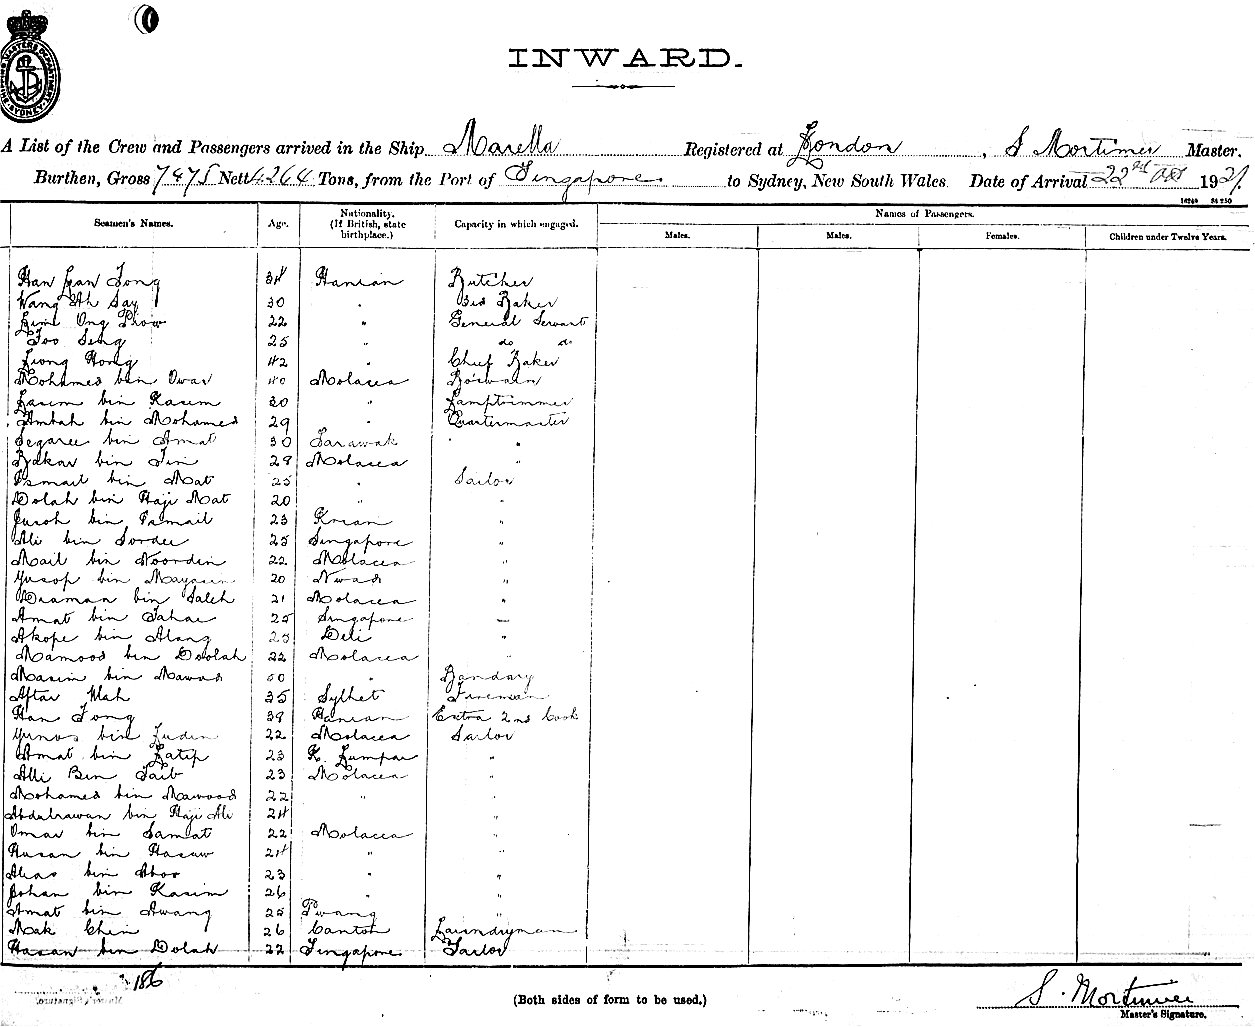 INWARD.
A List of the Crew and Passengers arrived in the Ship Marella Registered at London, S Mortimer Master.
Burthen, Gross 7475 Nett 4264 Tons, from the Port of Singapore. to Sydney, New South Wales. Date of Arrival 22nd 1921.
Names of Passengers.
Seamen's Names. Age. Nationality. (If British, state birthplace.) Capacity in which engaged. Males. Males. Females. Children under Twelve Years.
Han Tong 34 Butcher
Wang Ah Say 30 " 3rd Baker
Ong 22 " General Servant
Seng 25 " do do
Hong 42 " Chief Baker
Mohamed bin Omar 40 Molacca
bin Kasim 30 " Lamptrimmer
Ambah bin Mohamed 29 " Quartermaster
Segaree bin Amat 30 Sarawak " "
bin 29 Molacca "
Ismail bin Mat 25 " Sailor
Dolah bin Haji Mat 20 " "
bin Ismail 23 "
Ali bin 25 Singapore "
Mail bin Noordin 22 Molacca "
Yusop bin 20 "
bin Saleh 21 Molacca "
Amat bin 25 Singapore
Akope bin Alang 25 Deli "
Mamood bin Doolah 22 Molacca "
bin "
Aftar 35 Sylhet Fireman
Han Tong 39 Extra 2nd Cook
Yunos bin 22 Molacca Sailor
Amat bin Latip 23 K. Lumpar "
Alli Bin Taib 23 Molacca "
Mohamed bin Mawood 22 " "
bin Haji Ali 24 "
Omar bin Samat 22 Molacca "
Hasan bin 24 " "
bin 23 " "
Johan bin Kasim 26 " "
Amat bin Awang 25 "
Mak Chin 26 Canton Laundryman
Hasan bin Dolah 22 Singapore Sailor
186
(Both sides of form to be used.)
S. Mortimer
Master's Signature.